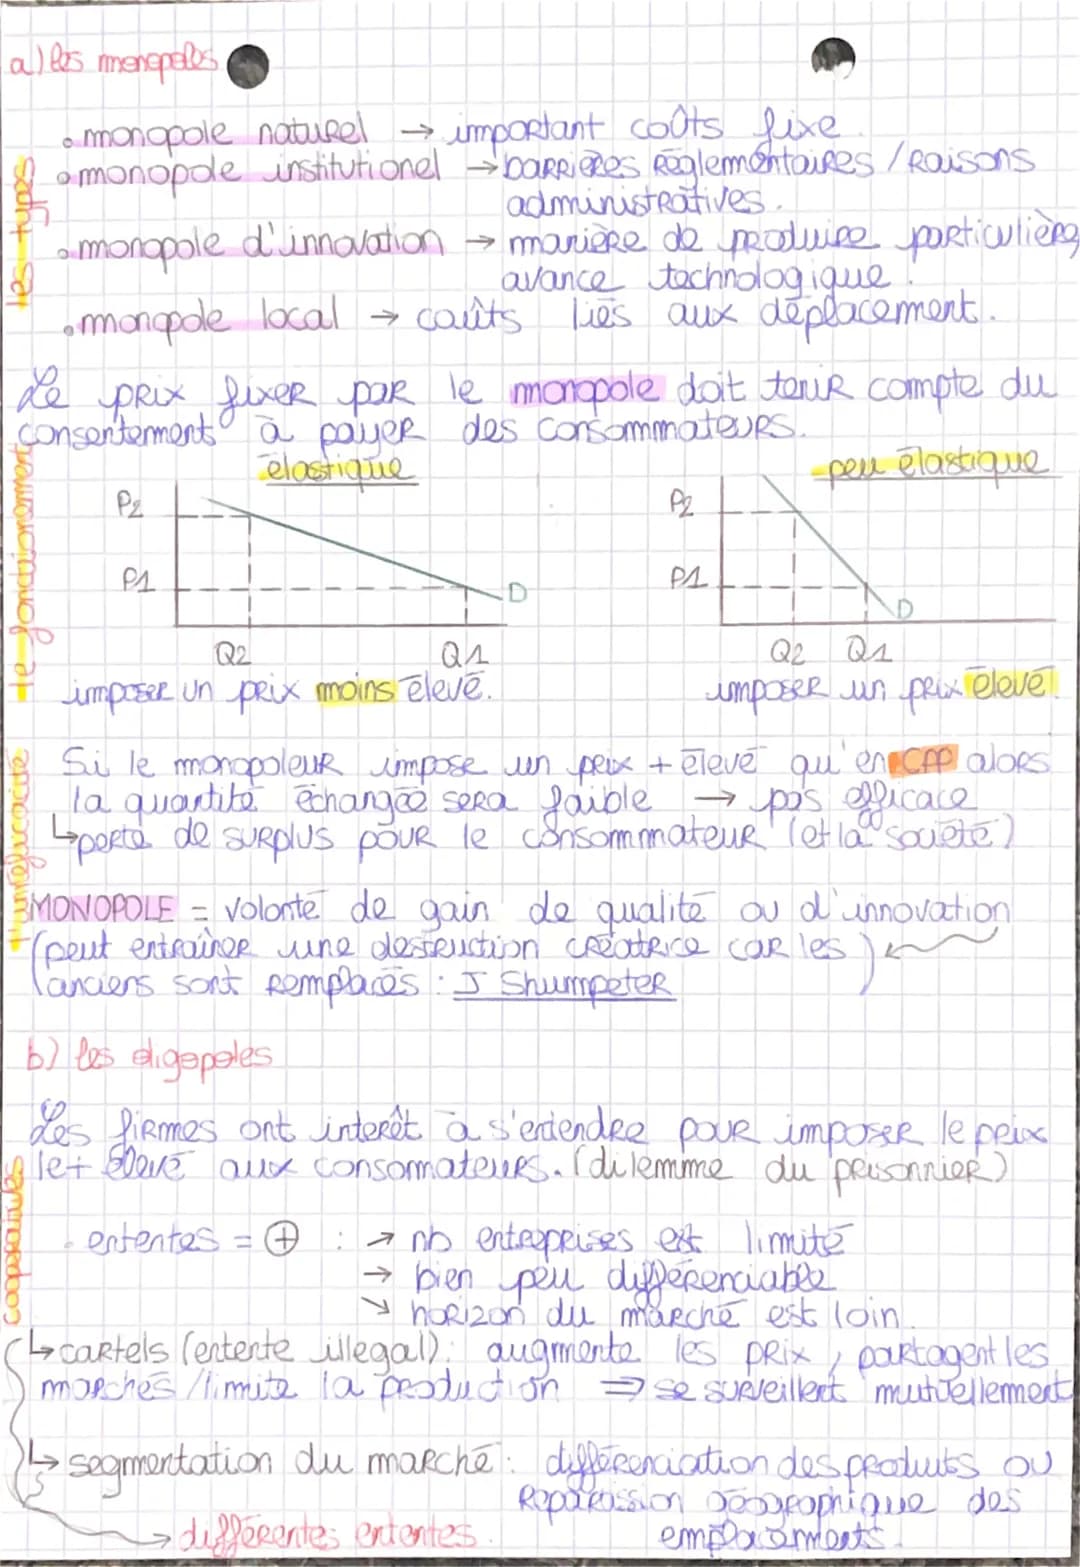 a) les monopoles
les types
• monopole naturel → important coûts fixe.
• monopole institutionel → barrières réglementaires / raisons
administratives.
• monopole d'innovation → manière de produire particulière,
avance technologique.
• monopole local → coûts liés aux déplacement.
Le prix fixer par le monopole doit tenir compte du
consentement à payer des consommateurs.
le fonctionnement
élastique
peu élastique
P2
P1
D
Q2 Q1
P2
P1
D
Q2 Q1
imposer un prix moins élevé.
imposer un prix élevé.
l'inefficacité
Si le monopoleur impose un prix + élevé qu'en CPP alors
la quantité échangée sera faible → pas efficace
↳ perte de surplus pour le consommateur (et la société)
MONOPOLE = volonté de gain de qualité ou d'innovation
(peut entraîner une destruction créatrice car les
anciens sont remplacés : J Shumpeter)
b) les oligopoles
Les firmes ont intérêt à s'entendre pour imposer le prix
le + élevé aux consomateurs. (dilemme du prisonnier)
coopératives
ententes = ⊕ : → nb entreprises est limité
→ bien peu différenciable
↘ horizon du marché est loin.
↳ cartels (entente illégal) : augmente les prix, partagent les
marchés / limite la production ⇒ se surveillent mutuellement
↳ segmentation du marché : différenciation des produits ou
géographique des
emplacements.
→ différentes ententes.